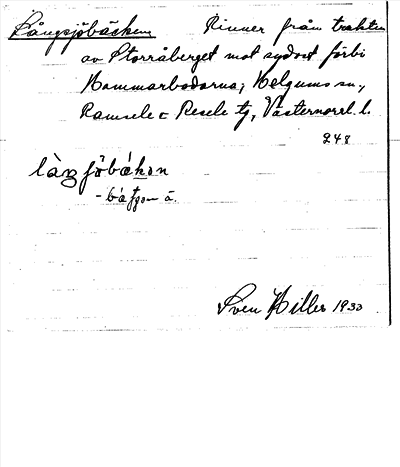 Långsjöbäcken Rinner från trakten
av Storråberget mot sydost förbi
Hammarbodarna; Helgums sn.,
Ramsele o Resele tg, Västernorrl. l.
248
làŋʃöbɛ́kən
Sven Hiller 1930